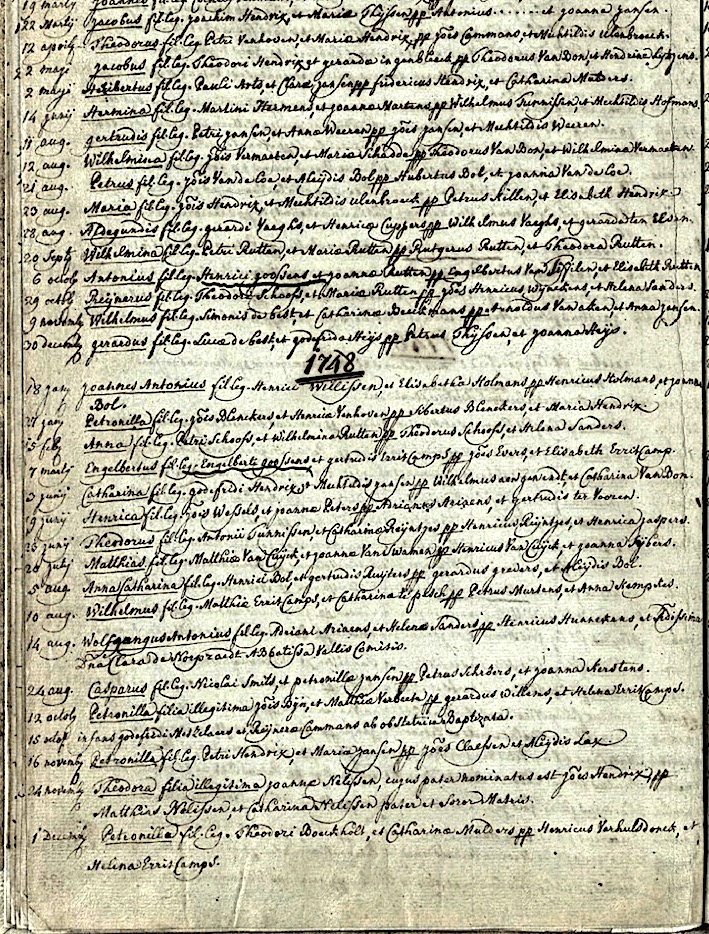 19 martij Joannes fil. leg.
22 Martij Jacobus fil. leg. Joachim Hendrix, et Mariæ Thyssen pp Antonius ........ et Joanna Jansen.
12 aprilis Theodorus fil. leg. Petri Venhoven, et Mariæ Hendrix, pp Joês Commans, et Mechtildis Ulenbroeck.
22 maji Jacobus fil. leg. Theodori Hendrix et gerardæ ingenbleek pp Theodorus Van Don, et Hendrina
2 maji Heribertus fil. leg. Pauli Arts, et Claræ Jansen pp fridericus Hendrix, et Catharina Maders.
14 junij Hermina fil. leg. Martini Hermens, et Joannæ Martens pp Wilhelmus Tunnissen, et Mechtildis Hofmans.
11 aug. gertrudis fil. leg. Petri Jansen, et Annæ Weeren pp Joês Jansen, et Mechtildis Weeren.
12 aug. Wilhelmina fil. leg. Joîs Vermarten, et Mariæ Schadde pp Theodorus Van Don, et Wilhelmina Vermaeten.
21 aug. Petrus fil. leg. Joîs Van de Loe, et Aleydis Bol pp Hubertus Bol, et Joanna Van de Loe.
23 aug. Maria fil. leg. Joîs Hendrix, et Mechtildis Ulenbroeck pp Petrus Killen, et Elisabeth Hendrix.
28 aug. Aldegundis fil. leg. gerardi Vaeghs, et Henricæ Cuppers pp Wilhelmus Vaeghs, et gerarda ten Elsen.
20 Septb Wilhelmina fil. leg. Petri Rutten, et Mariæ Rutten pp Rutgerus Rutten, et Theodora Rutten.
6 octob Antonius fil. leg. Henrici goossens et Joannæ Rutten pp Engelbertus Van Wylen, et Elisabeth Rutten
29 octob Reijnerus fil. leg. Theodori Schoofs, et Mariæ Rutten pp Joês Henricus Wynekens, et Helena Sanders.
9 novemb Wilhelmus fil. leg. Simonis de best, et Catharinæ Beeckmans pp Arnoldus Van aken, et Anna Jansen.
30 decemb gerardus fil. leg. Lucæ de best, et godefrida Heijs pp Petrus Thyssen, et Joanna Heijs.
1748
18 janij Joannes Antonius fil. leg. Henrici Willissen, et Elisabethæ Holmans pp Henricus Holmans, et Joanna
Bol.
27 janij Petronilla fil. leg. Joîs Blenckers, et Henricæ Venhoven pp Sibertus Blenckers, et Maria Hendrix
15 feb Anna fil. leg. Petri Schoofs, et Wilhelmina Rutten pp Theodorus Schoofs, et Helena Sanders.
7 martij Engelbertus fil. leg. Engelberti goossens et gertrudis ErritCamps pp Joês Evers, et Elisabeth ErritCamp.
3 junij Catharina fil. leg. godefridi Hendrix, et Mechtildis Jansen pp Wilhelmus aengenendt, et Catharina Van Don.
19 junij Henrica fil. leg. Joîs Wessels, et Joannæ Peters pp Adrianus Arinens, et gertrudis ter Voozen.
25 junij Theodorus fil. leg. Antonii Tunnissen, et Catharinæ Reijntjes pp Henricus Reijntjes, et Henrica Jaspers.
26 julij Matthias fil. leg. Matthiæ Van Cuijck, et Joannæ Van Wamen pp Henricus Van Cuijck, et Joanna Sijbers.
5 aug. Anna Catharina fil. leg. Henrici Bol, et gertrudis Ruijters pp gerardus gevers, et Aleydis Bol.
10 aug. Wilhelmus fil. leg. Matthiæ ErritCamps, et Catharinæ te pasch pp Petrus Murtens, et Anna Kempkes.
14 aug. Wolfgangus Antonius fil. leg. Adriani Arinens, et Helenæ Sanders pp Henricus Hunnekens, et Rdissima
Dna Clara de Noeprædt Abbatissa Vallis Comitis.
24 aug. Casparus fil. leg. Nicolai Smits, et petronillæ Jansen pp Petrus Schrörs, et Joanna Kerstens.
12 octob Petronilla filia illegitima Joîs Bijn, et Matthiæ Verbeeth pp gerardus Willems, et Helena ErritCamps.
15 octob infans godefridi Metzelaers, et Reijneræ Commans ab obstetrice Baptizata.
16 novemb Petronilla fil. leg. Petri Hendrix, et Mariæ Jansen pp Joês Claessen, et Aleydis Lax.
24 novemb Theodora filia illegitima Joannæ Nelissen, cujus pater nominatus est Joês Hendrix, pp
Matthias Nelissen, et Catharina Nelissen pater et Soror Matris.
1 Decemb Petronilla fil. leg. Theodori Boeckholt, et Catharinæ Mulders pp Henricus Verhulsdonck, et
Helena ErritCamps.